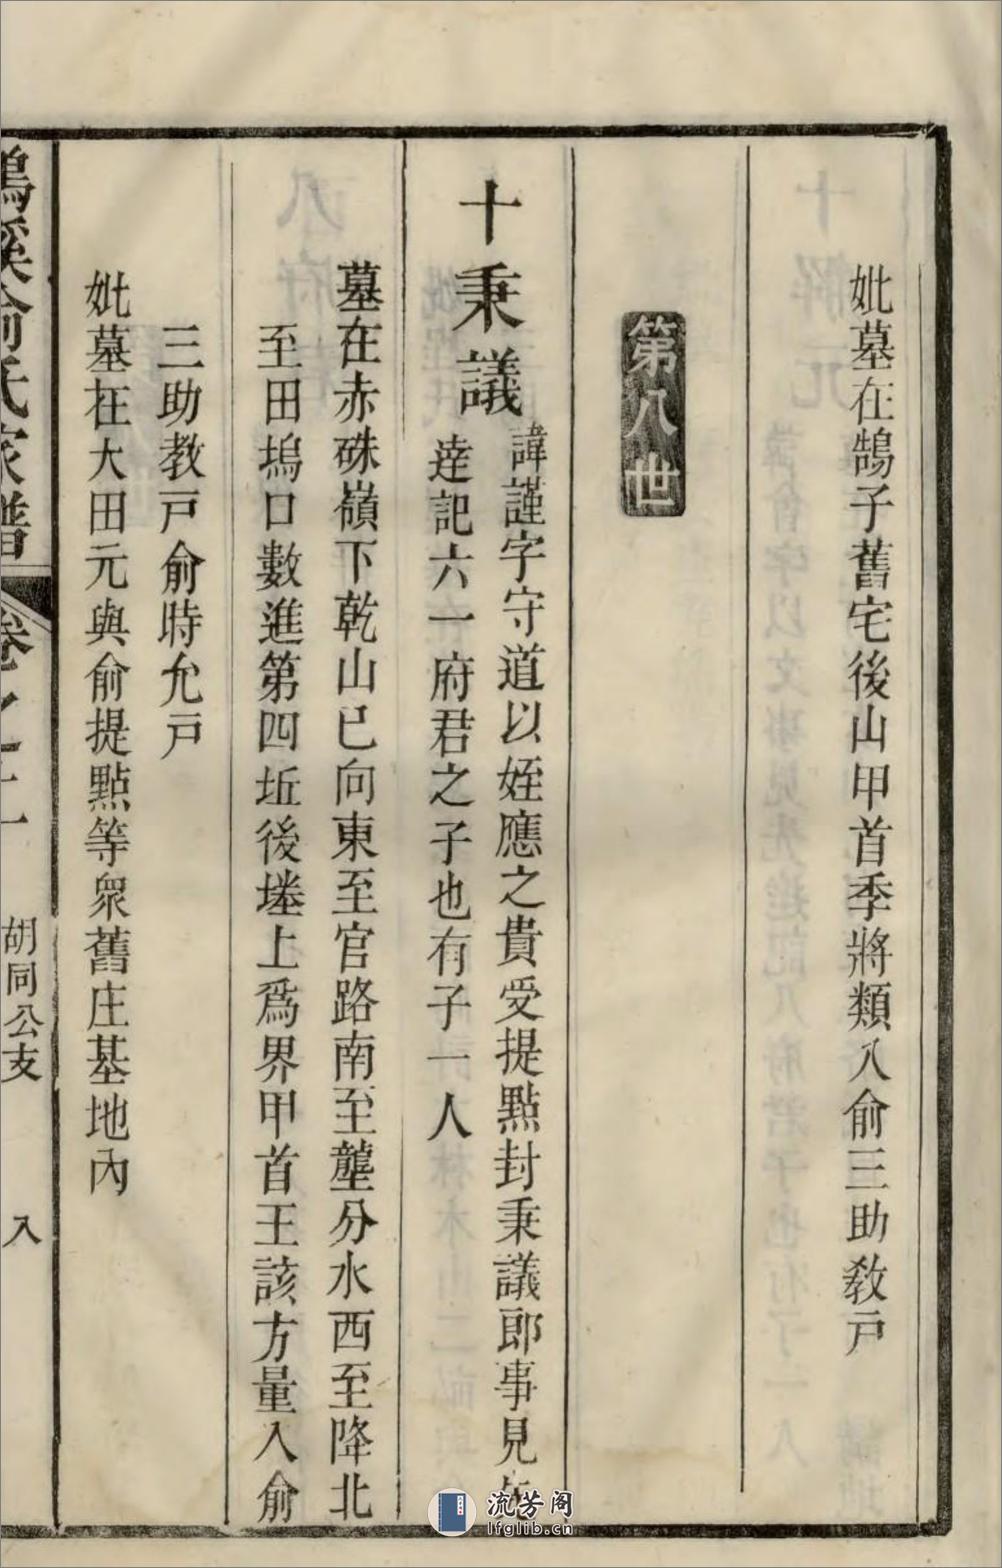 妣墓在鵠子舊宅後山甲首季將類入俞三助敎戶
第八世
十秉議
諱謹字守道以姪應之貴受提點封秉議郎事見先
逹記六一府君之子也有子一人
墓在赤硃嶺下乾山巳向東至官路南至壟分水西至降北
至田塢口數進第四坵後塝上爲界甲首王該方量入俞
三助敎戸俞時允戸
妣墓在大田元與俞提點等衆舊庄基地內
俞氏家譜
卷之
胡同公支
八
流芳阁
lfglib.cn